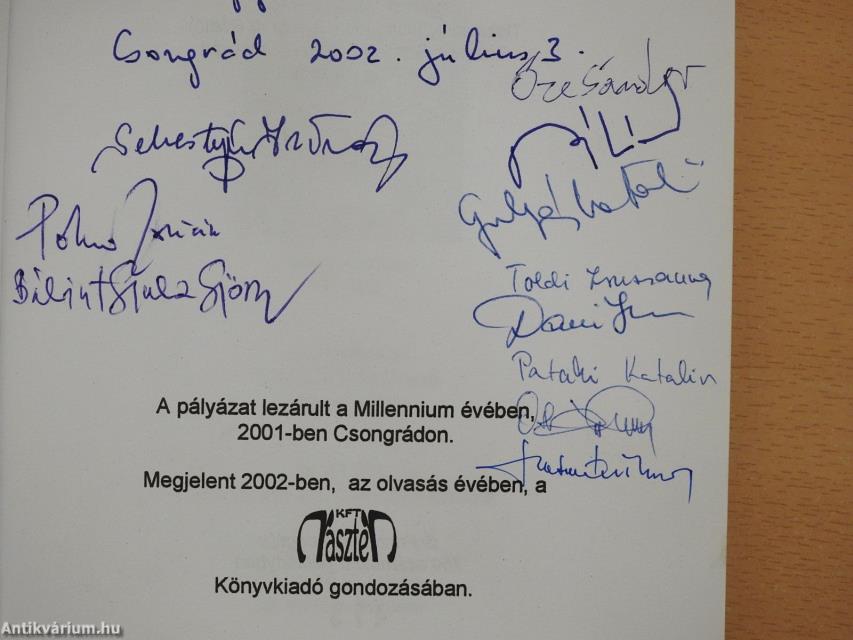 Csongrád 2002. július 3.
Őze Sándor
Sebestyén István
Gulyás Katalin
Bálint Gyula György
Toldi Zsuzsanna
Dani
Pataki Katalin
A pályázat lezárult a Millennium évében,
2001-ben Csongrádon.
Megjelent 2002-ben, az olvasás évében, a
KFT
Raszter
Könyvkiadó gondozásában.
Antikvárium.hu